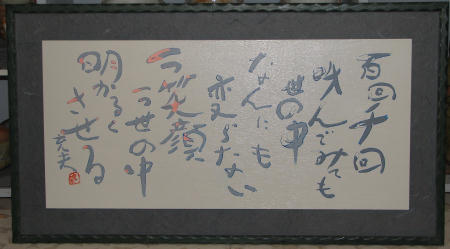 百回千回
叫んでみても
世の中
なんにも
変らない
笑顔
世の中
明かるく
させる